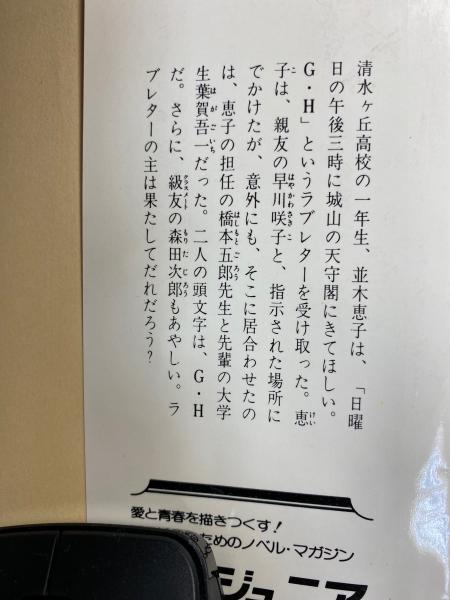 清水ヶ丘高校の一年生、並木恵子は、「日曜
日の午後三時に城山の天守閣にきてほしい。
G・H」というラブレターを受け取った。恵
子は、親友の早川咲子と、指示された場所に
でかけたが、意外にも、そこに居合わせたの
は、恵子の担任の橋本五郎先生と先輩の大学
生葉賀吾一だった。二人の頭文字は、G・H
だ。さらに、級友の森田次郎もあやしい。ラ
ブレターの主は果たしてだれだろう?
愛と青春を描きつくす!
ためのノベル・マガジン
ジュニア